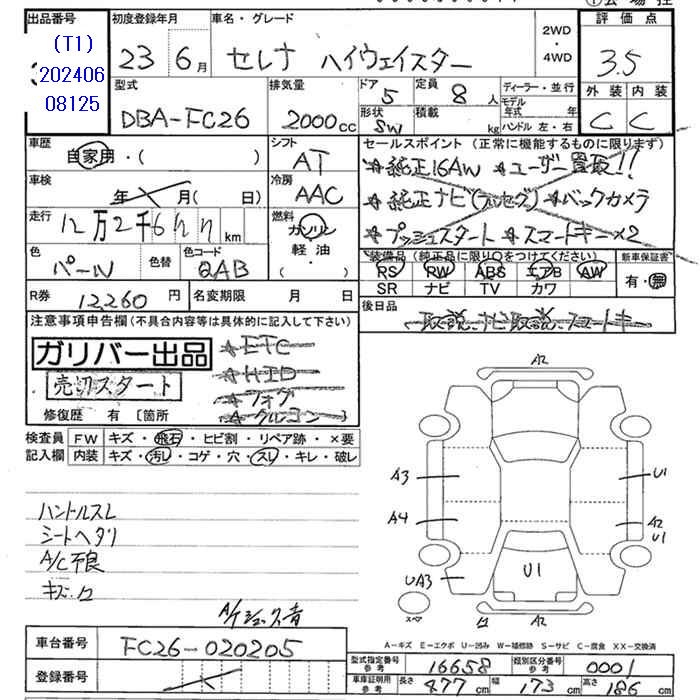 出品番号 初度登録年月 車名・グレード 2WD・4WD 評価点
(T1) 23 6月 セレナ ハイウェイスター 3.5
202406
08125
外装 内装
C C
型式 排気量 ドア 定員 ディーラー・並行
DBA-FC26 2000cc 5 8人 モデル年式 年式
形状 積載 kg ハンドル 左・右
SW
車歴 シフト セールスポイント (正常に機能するものに限ります)
自家用・( ) AT ☆純正16AW ☆ユーザー買取!!
車検 冷房
年 月( 日) AAC ☆純正ナビ(フルセグ) ☆バックカメラ
走行 燃料
12万2千6 km ガソリン ☆プッシュスタート ☆スマートキー×2
軽油
・( )
色 色替 色コード
パール QAB
装備品 (純正品に限り○をつけてください) 新車保証書
RS RW ABS エアB AW 有・無
SR ナビ TV カワ
R券 12,260円 名変期限 月 日
後日品
取説 ナビ取説 スマートキー
注意事項申告欄(不具合内容等は具体的に記入して下さい)
ガリバー出品 ☆ETC
売切スタート ☆HID
☆フォグ
☆クルコン
修復歴 有 〔箇所 〕
検査員 FW キズ・飛石・ヒビ割・リペア跡・×要
記入欄 内装 キズ・汚レ・コゲ・穴・スレ・キレ・破レ
ハンドルスレ
シートヘタリ
A/C不良
A2
A3 U1
A4 A2
U1
UA3 U1
スペア A2
A-キズ E-エクボ U-凹み W-補修跡 S-サビ C-腐食 XX-交換済
車台番号 FC26-020205
型式指定番号 参考 16658 類別区分番号 参考 0001
登録番号
車庫証明用 参考 長さ 477cm 幅 173cm 高さ 186cm